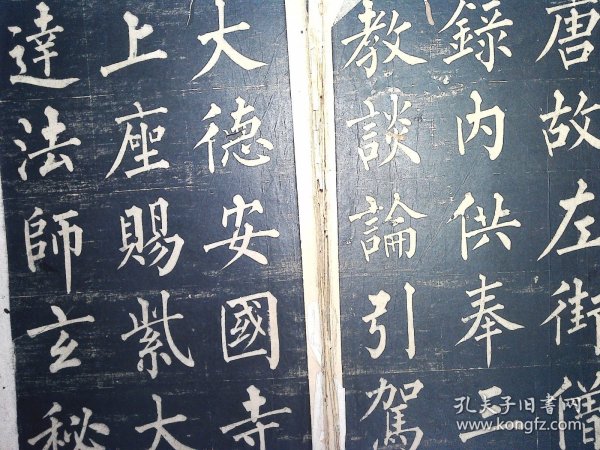 唐故左街僧
録内供奉三
教談論引駕
大德安國寺
上座賜紫大
達法師玄秘
孔夫子旧书网
www.kongfz.com